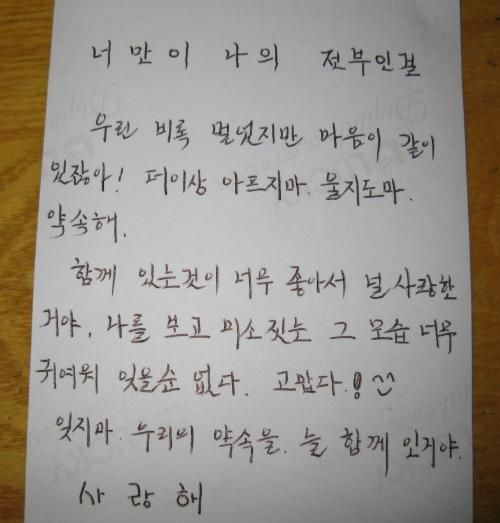 너만이 나의 전부인걸
우린 비록 멀었지만 마음이 같이
있잖아! 더이상 아프지마. 울지도마.
약속해.
함께 있는것이 너무 좋아서 널 사랑한
거야. 나를 보고 미소짓는 그 모습 너무
귀여워 잊을순 없다. 고맙다.! ^^
잊지마. 우리의 약속을. 늘 함께 인거야.
사랑해